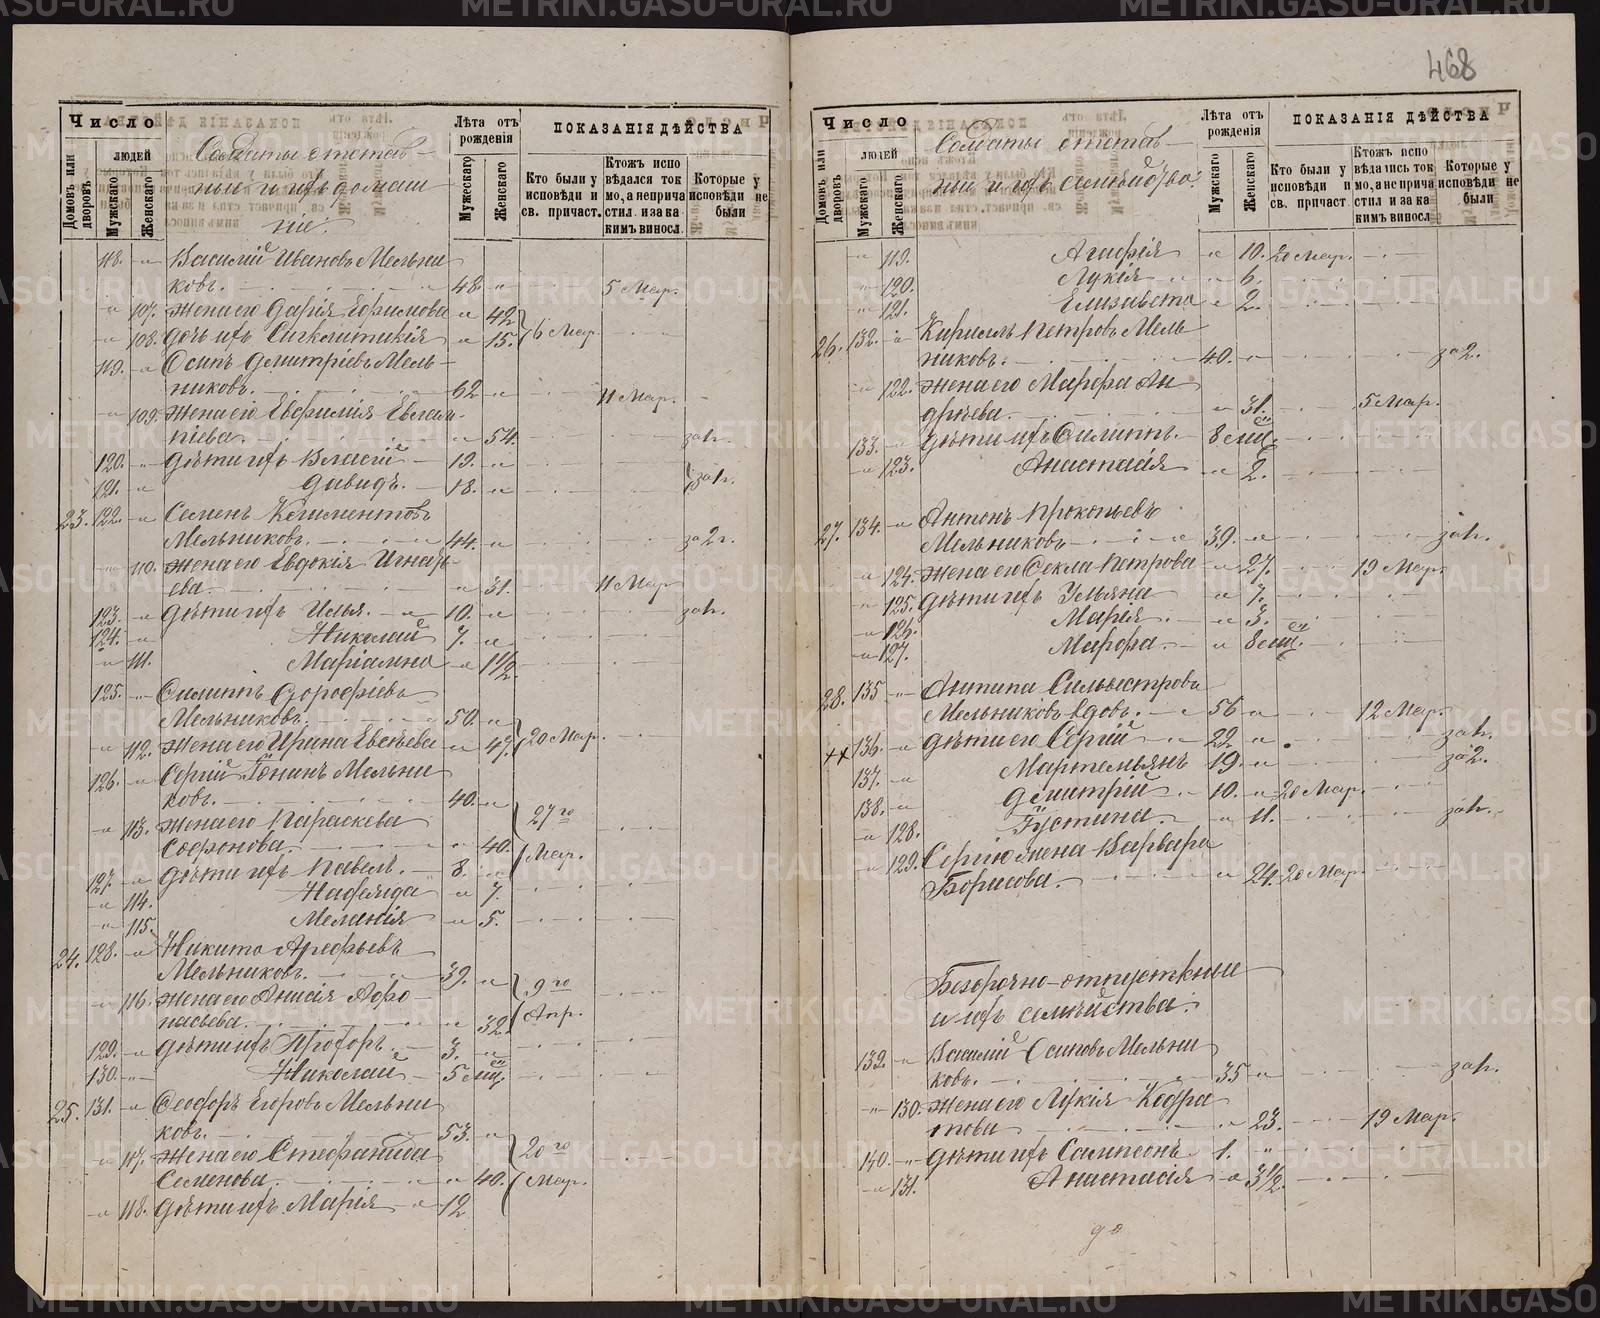 468
Число
Домовъ или дворовъ
людей
Мужескаго
Женскаго
Солдаты отстав-
ные и ихъ домаш
ніе.
Лѣта отъ рожденія
Мужескаго
Женскаго
ПОКАЗАНІЯ ДѢЙСТВА
Кто были у исповѣди и св. причаст.
Ктожъ испо вѣдался ток мо, а неприча стил. и за ка кимъ винос.
Которые у исповѣди не были
118. Василій Ивановъ Мельни
ковъ. 48. 5 Мар.
107. Жена его Дарія Ефимова 42
108. дочь ихъ Сигклитикія 15. 16 Мар.
119. Осипъ Дмитріевъ Мель-
никовъ. 62 11 Мар.
109. Жена его Евфимія Евлам-
піева. 54. за л.
120. Дѣти ихъ Власій 19.
121. Давидъ. 18. за л.
23. 122. Семенъ Климентовъ
Мельниковъ. 44. за 2 л.
110. Жена его Евдокія Игнать-
ева. 31. 11 Мар.
123. Дѣти ихъ Илья. 10. за л.
124. Николай 7.
111. Маріамна 1 1/2
125. Филиппъ Дорофіевъ
Мельниковъ. 50.
112. Жена его Ирина Евсѣева 47. 20 Мар.
126. Сергій Іонинъ Мельни
ковъ. 40.
113. Жена его Параскева 27го
Софонова. 40. Мар.
127. Дѣти ихъ Павелъ. 8.
114. Надежда 7.
115. Меланія 5.
24. 128. Никита Арефьевъ
Мельниковъ. 39.
116. Жена его Анисія Афо- 9го
насьева. 32. Апр.
129. Дѣти ихъ Прохоръ. 3.
130. Николай 5 мц.
25. 131. Феодоръ Егоровъ Мельни
ковъ. 53.
117. Жена его Стефанида 20го
Семенова. 40. Мар.
118. Дѣти ихъ Марія 12
Число
Домовъ или дворовъ
людей
Мужескаго
Женскаго
Солдаты отстав-
ные и ихъ семейства.
Лѣта отъ рожденія
Мужескаго
Женскаго
ПОКАЗАНІЯ ДѢЙСТВА
Кто были у исповѣди и св. причаст.
Ктожъ испо вѣдались ток мо, а не прича стил. и за ка кимъ винос.
Которые у исповѣди не были
119. Агафія 10. 20 Мар.
120. Лукія 6.
121. Елизавета 2.
26. 132. Кириллъ Петровъ Мель
никовъ. 40. за 2.
122. Жена его Марфа Ан
дреева. 31. 5 Мар.
133. Дѣти ихъ Филиппъ. 8 мц.
123. Анастасія 2.
27. 134. Антонъ Прокопьевъ
Мельниковъ 39. за л.
124. Жена его Фекла Петрова 27. 19 Мар.
125. Дѣти ихъ Ульяна 7.
126. Марія 3.
127. Марфа. 8 мц.
28. 135 Антипа Сильвестровъ
Мельниковъ вдовъ. 56 12 Мар.
136. Дѣти его Сергій 22 за л.
137. Мартемьянъ 19. за 2.
138. Дмитрій 10. 20 Мар.
128. Іустина. 11. за л.
129. Сергію жена Варвара
Борисова. 24. 20 Мар.
Безсрочно-отпускные
и ихъ семейства.
139. Василій Осиповъ Мельни
ковъ. 35 за л.
130. Жена его Лукія Кодра
това 23. 19 Мар.
140. Дѣти ихъ Сампсонъ 1.
131. Анастасія 3 1/2.
METRIKI.GASO-URAL.RU